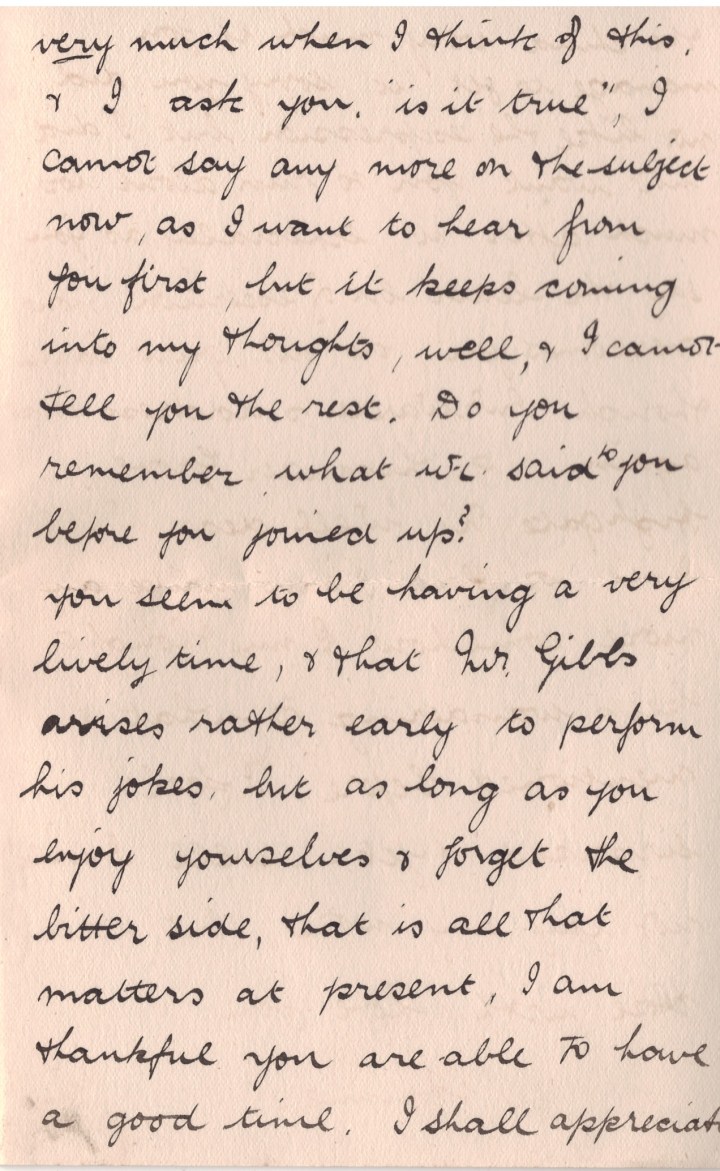 very much when I think of this,
& I ask you, "is it true", I
cannot say any more on the subject
now, as I want to hear from
you first, but it keeps coming
into my thoughts, well, & I cannot
tell you the rest. Do you
remember what we said to you
before you joined up?
you seem to be having a very
lively time, & that Mr. Gibbs
arises rather early to perform
his jokes, but as long as you
enjoy yourselves & forget the
bitter side, that is all that
matters at present, I am
thankful you are able to have
a good time. I shall appreciat